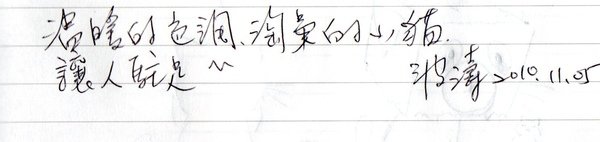 暗的色调、淘氣的小貓.
讓人駐足 ~ 波濤 2010.11.05